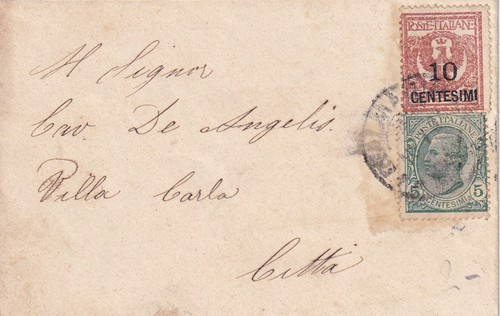 Al Signor
Cav. De Angelis.
Villa Carla
Città
POSTE ITALIANE
10
CENTESIMI
POSTE ITALIANE
5 5
CENTESIMI